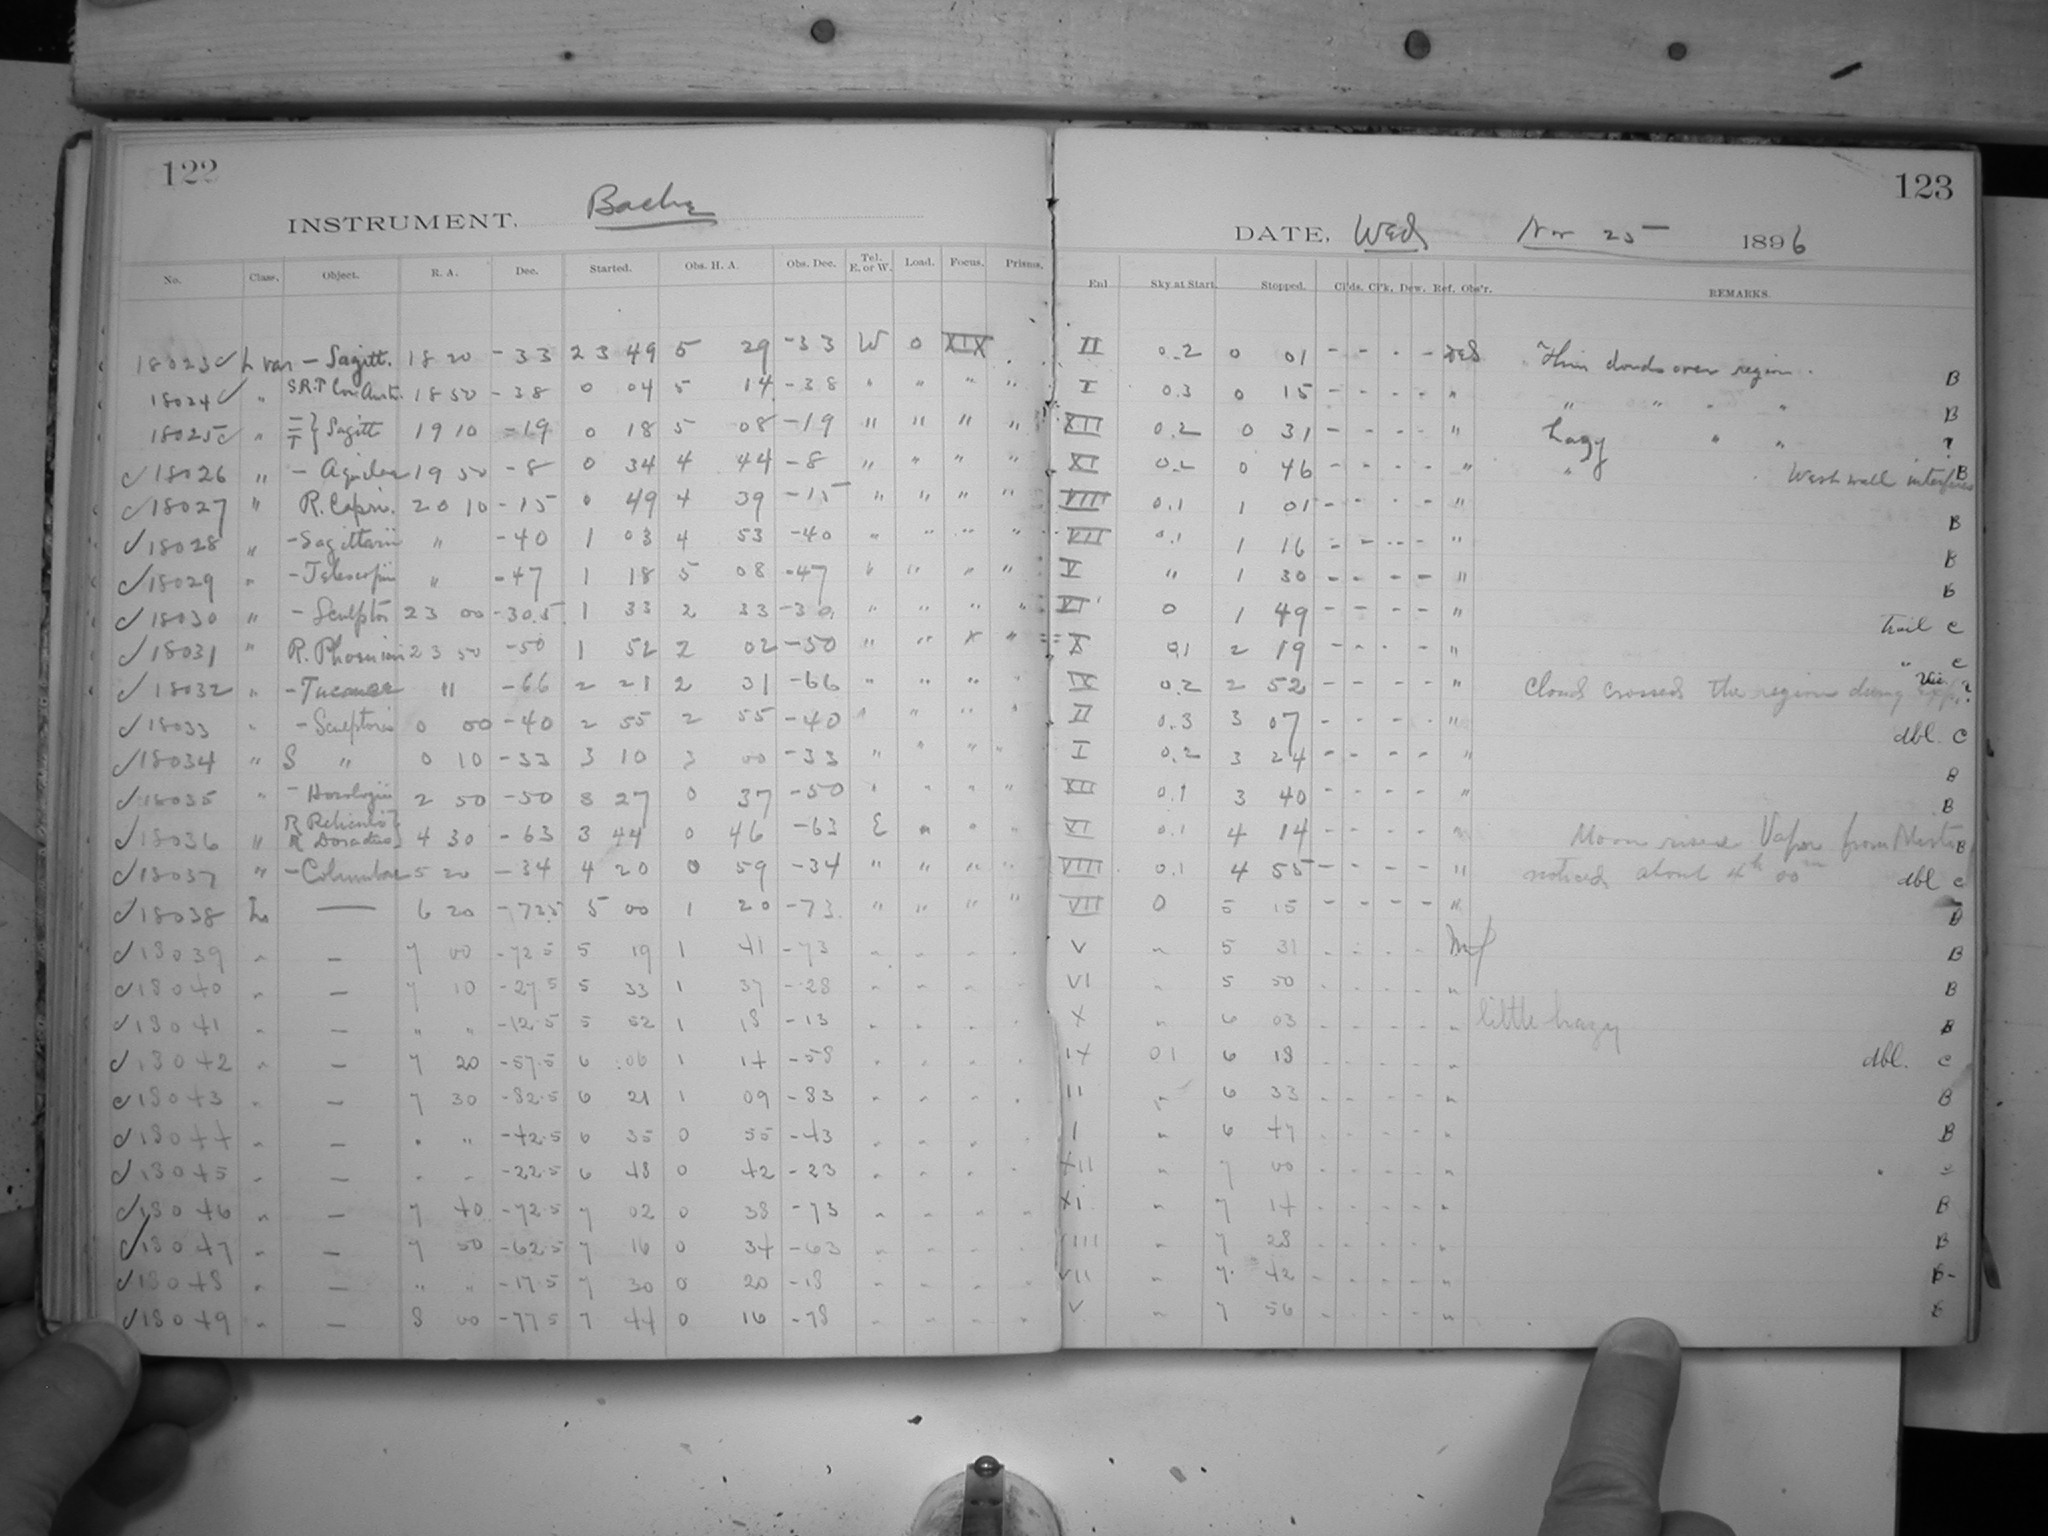 122
INSTRUMENT. Bache
No. Class. Object. R. A. Dec. Started. Obs. H. A. Obs. Dec. Tel. E. or W. Load. Focus. Prisms.
18023 L var — Sagitt. 18 20 -33 23 49 5 29 -33 W 0 XIX
18024 " S.R.T Cor. Aust. 18 50 -38 0 04 5 14 -38 " " " "
18025 " T } Sagitt 19 10 -19 0 18 5 08 -19 " " " "
18026 " — Aquilae 19 50 -8 0 34 4 44 -8 " " " "
18027 " R. Capri. 20 10 -15 0 49 4 39 -15 " " " "
18028 " - Sagittarii " -40 1 03 4 53 -40 " " " "
18029 " - Telescopii " -47 1 18 5 08 -47 " " " "
18030 " - Sculptor 23 00 -30.5 1 33 2 33 -30 " " " "
18031 " R. Phoenicis 23 50 -50 1 52 2 02 -50 " " × "
18032 " - Tucanae " -66 2 21 2 31 -66 " " " "
18033 " - Sculptoris 0 00 -40 2 55 2 55 -40 " " " "
18034 " S " 0 10 -33 3 10 3 00 -33 " " " "
18035 " - Horologii 2 50 -50 3 27 0 37 -50 " " " "
18036 " R Reticuli R Doradus } 4 30 -63 3 44 0 46 -63 E " " "
18037 " - Columbae 5 20 -34 4 20 0 59 -34 " " " "
18038 L — 6 20 -72.5 5 00 1 20 -73 " " " "
18039 " — 7 00 -72.5 5 19 1 41 -73 " " " "
18040 " — 7 10 -27.5 5 33 1 37 -28 " " " "
18041 " — " " -12.5 5 52 1 18 -13 " " " "
18042 " — 7 20 -57.5 6 06 1 14 -58 " " " "
18043 " — 7 30 -82.5 6 21 1 09 -83 " " " "
18044 " — " " -42.5 6 35 0 55 -43 " " " "
18045 " — " " -22.5 6 48 0 42 -23 " " " "
18046 " — 7 40 -72.5 7 02 0 38 -73 " " " "
18047 " — 7 50 -62.5 7 16 0 34 -63 " " " "
18048 " — " " -17.5 7 30 0 20 -18 " " " "
18049 " — 8 00 -77.5 7 44 0 16 -78 " " " "
123
DATE, Wed Nov 25 1896
Enl Sky at Start. Stopped. Cl'ds. Cl'k. Dew. Ref. Obs'r. REMARKS.
II 0.2 0 01 - - - - Thin clouds over region. B
I 0.3 0 15 - - - - " " " " " B
XII 0.2 0 31 - - - - " hazy " " ?
XI 0.2 0 46 - - - - " " West wall interferes B
VIII 0.1 1 01 - - - - " B
VII 0.1 1 16 - - - - " B
V " 1 30 - - - - " B
VI 0 1 49 - - - - " trail C
X 0.1 2 19 - - - - " " C
IX 0.2 2 52 - - - - " Cloud crossed the region during exp. ?
II 0.3 3 07 - - - - " dbl. C
I 0.2 3 24 - - - - " B
XII 0.1 3 40 - - - - " B
VI 0.1 4 14 - - - - " Moon risen Vapor from B
VIII 0.1 4 55 - - - - " noticed about 4h 00m dbl C
VII 0 5 15 - - - - " B
V " 5 31 - - - - B
VI " 5 50 - - - - " B
X " 6 03 - - - - " little hazy B
IX 0.1 6 18 - - - - " dbl. C
II " 6 33 - - - - " B
I " 6 47 - - - - " B
XII " 7 00 - - - - "
XI " 7 14 - - - - " B
VIII " 7 28 - - - - " B
VII " 7 42 - - - - " B-
V " 7 56 - - - - "